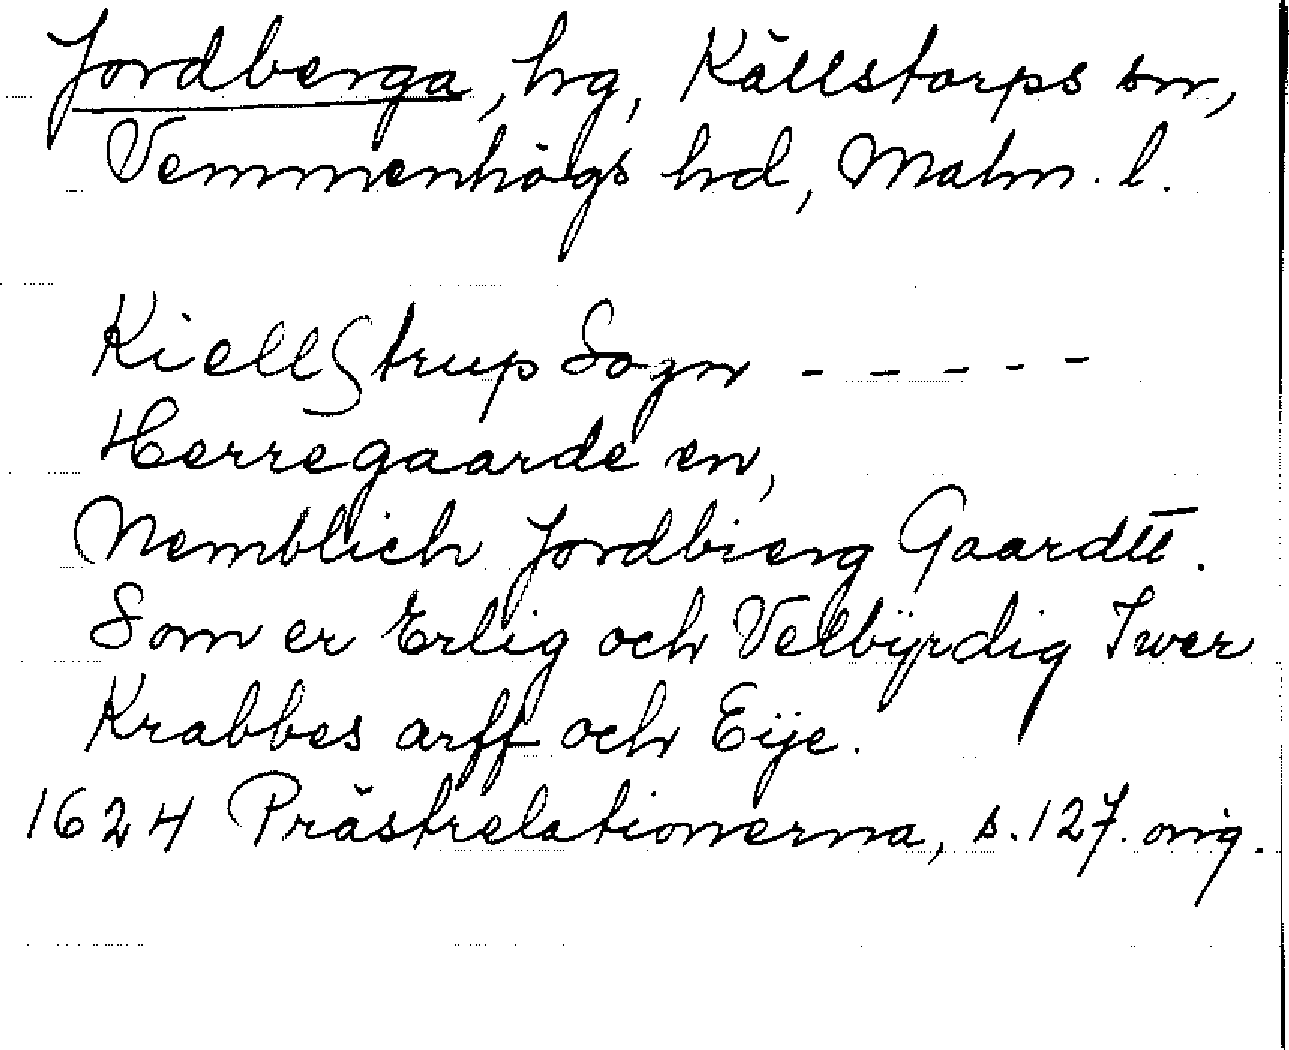 Jordberga, hg, Källstorps sn,
Vemmenhögs hd, Malm. l.
KiellStrup Sogn - - - - -
Herregaarde en,
Nemblich Jordbierg Gaardtt.
Som er Erlig och Velbÿrdig Iwer
Krabbes arff och Eije.
1624 Prästrelationerna, s. 127. orig.